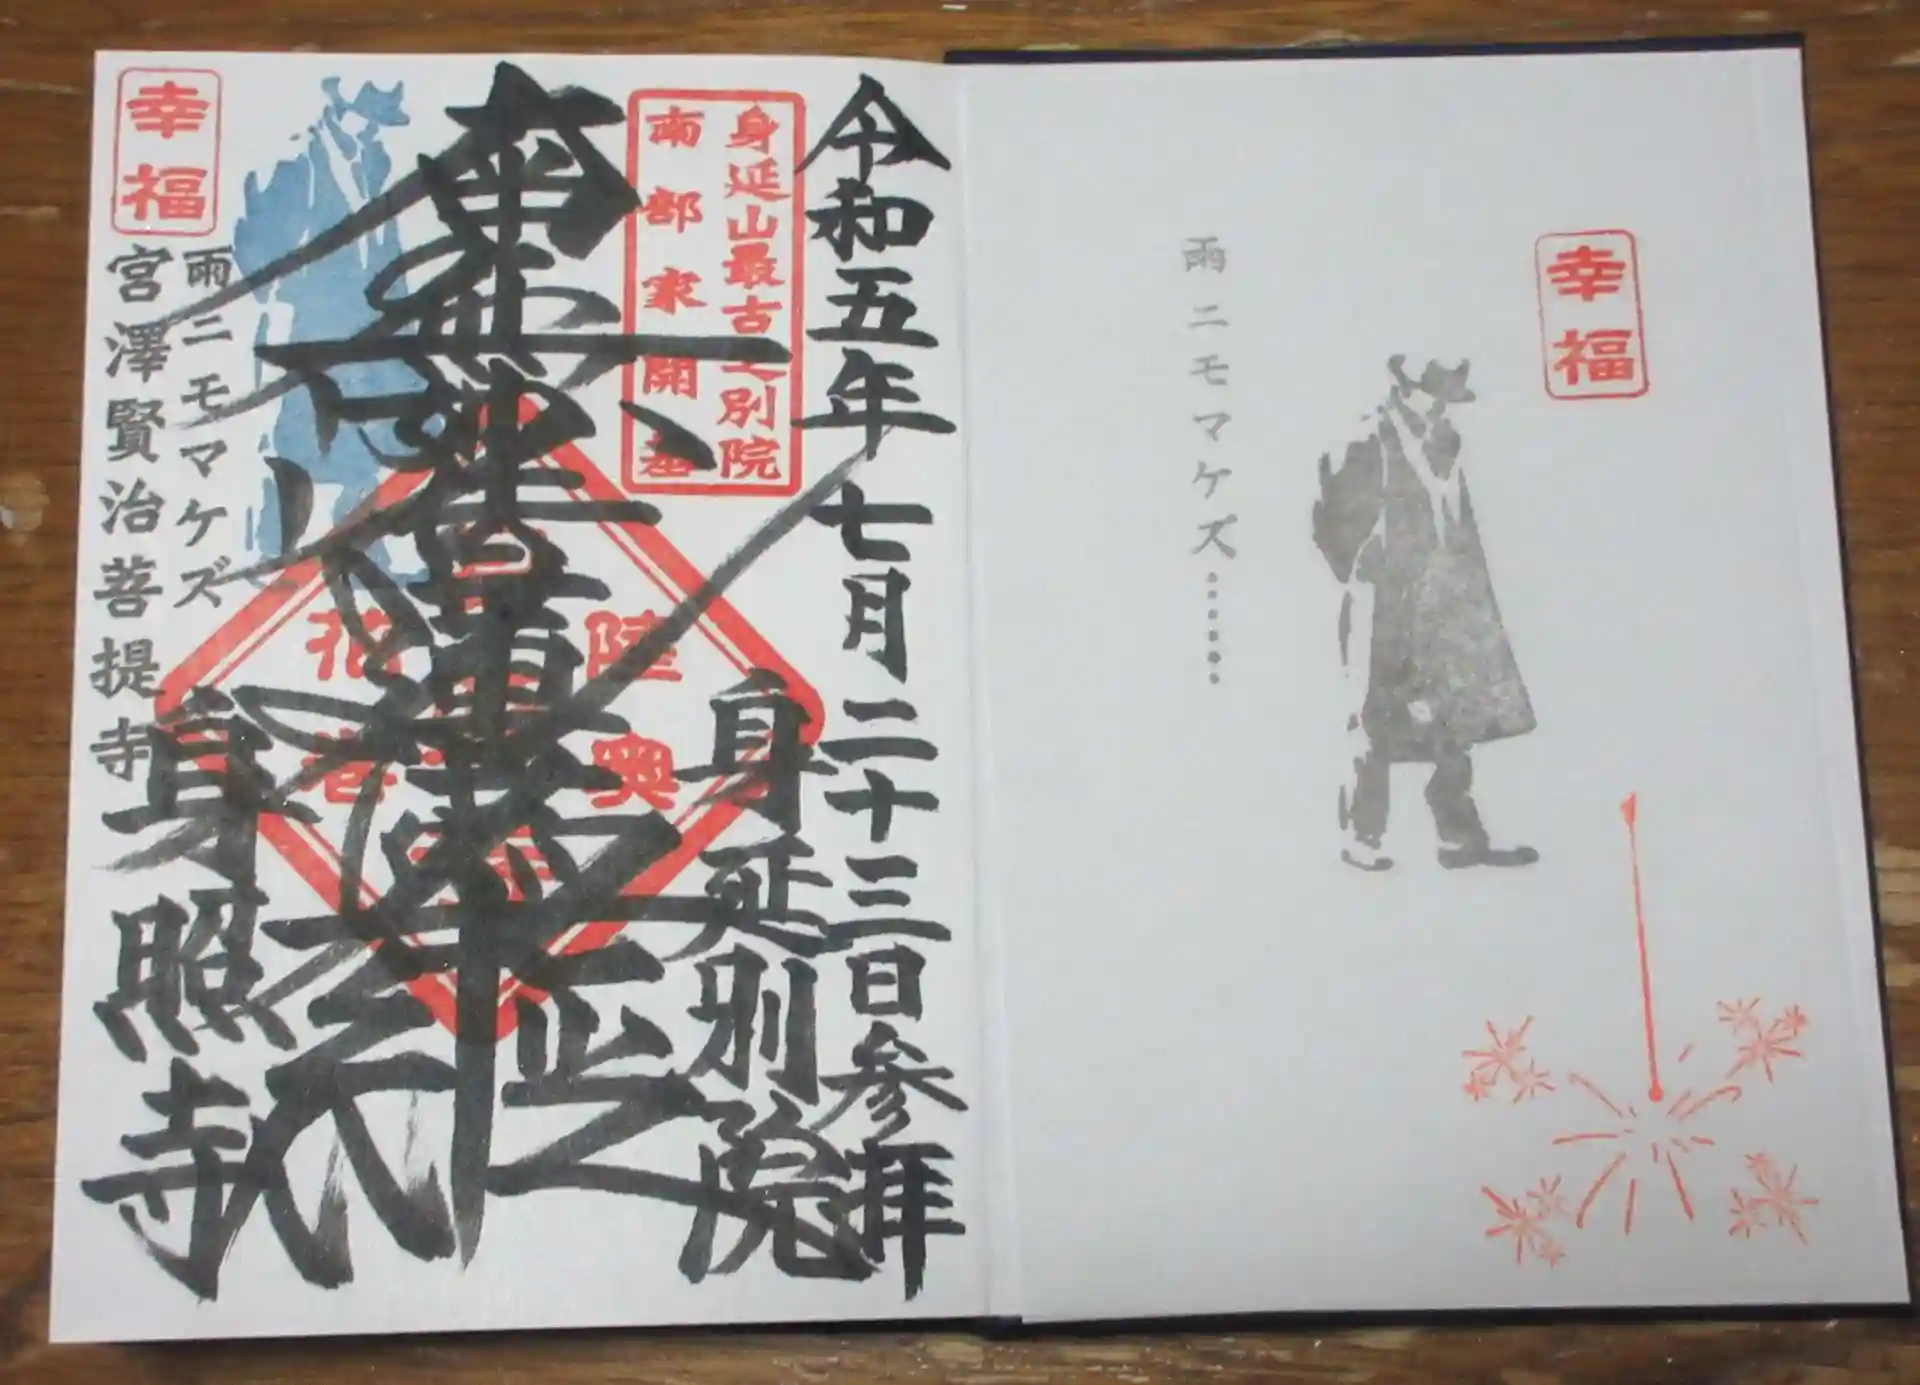 幸福
雨ニモマケズ……
令和五年七月二十三日参拝
身延別院
身延山最古之別院
南部家開基
陸奥
南無妙法蓮華経
花巻
身照寺
雨ニモマケズ
幸福
宮澤賢治菩提寺